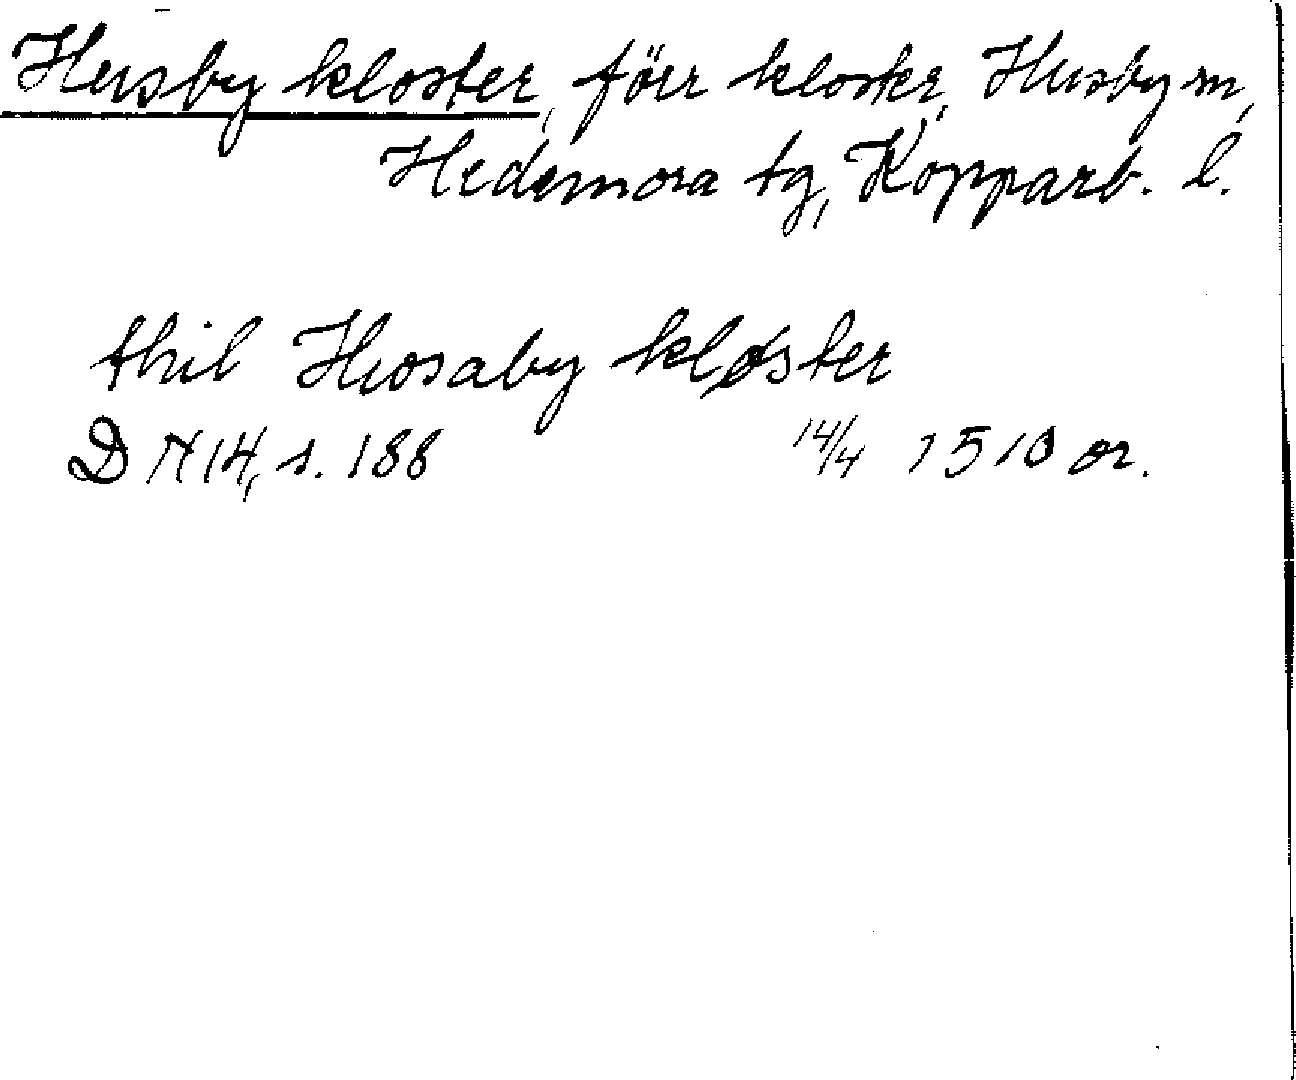 Husby kloster, förr kloster, Husby sn,
Hedemora tg, Kopparb. l.
thil Hwsaby kloster
DN 14, s. 188 14/4 1510 or.